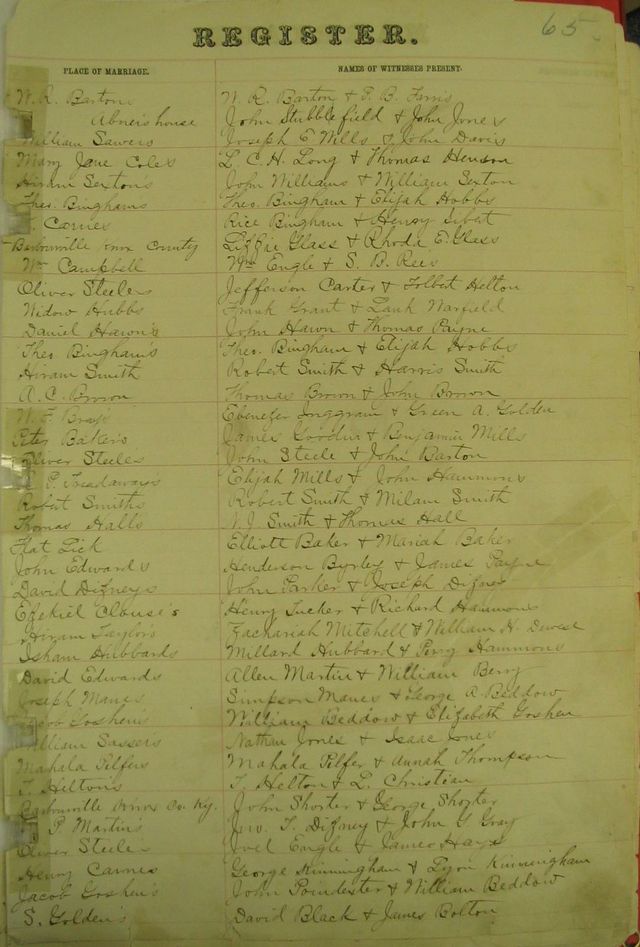 65
REGISTER.
PLACE OF MARRIAGE. NAMES OF WITNESSES PRESENT.
W. R. Barton W. R. Barton & P. B. Faris
Abner's house John Stubblefield & John Jones
William Sawers Joseph E Mills & John Davis
Mary Jane Coles L. C. H. Long & Thomas Henson
Hiram Sexton's John Williams & William Sexton
Theo. Binghams Theo. Bingham & Elijah Hobbs
Carnes Rice Bingham & Henry Sibet
Barbourville Knox County Lizzie Glass & Rhoda E. Glass
Wm Campbell Wm Engle & S. B. Rees
Oliver Steeles Jefferson Carter & Tolbert Helton
Widow Hubbs Frank Grant & Lank Warfield
Daniel Hawn's John Hawn & Thomas Payne
Theo. Bingham's Theo. Bingham & Elijah Hobbs
Hiram Smith Robert Smith & Harris Smith
A. C. Brown Thomas Brown & John Brown
W. F. Brays Ebenezer Inggram & Green A. Golden
Peter Bakers James Goodin & Benjamin Mills
Oliver Steeles John Steele & John Barton
P. Treadaways Elijah Mills & John Hammons
Robert Smiths Robert Smith & Milam Smith
Thomas Halls N. J. Smith & Thomas Hall
Flat Lick Elliott Baker & Mariah Baker
John Edwards Henderson Byrley & James Payne
David Dizneys John Parker & Joseph Dizney
Ezekiel Clouse's Henry Tucker & Richard Hammons
Hiram Taylor's Zachariah Mitchell & William H.
Isham Hubbards Millard Hubbard & Perry Hammons
David Edwards Allen Martin & William Berry
Joseph Manes Simpson Manes & George A. Beddow
Jacob Goshens William Beddow & Elizabeth Goshen
William Sasser's Nathan Jones & Isaac Jones
Mahala Pilfers Mahala Pilfer & Annah Thompson
T. Hiltons T. Helton & L. Christian
Barbourville Knox Co. Ky. John Shorter & George Shorter
P. Martin's Geo. T. Dizney & John G. Gray
Oliver Steeles Joel Engle & James Hays
Henry Carnes George Kinningham & Kinningham
Jacob Goshen's John Poindexter & William Beddow
S. Golden's David Black & James Bolton